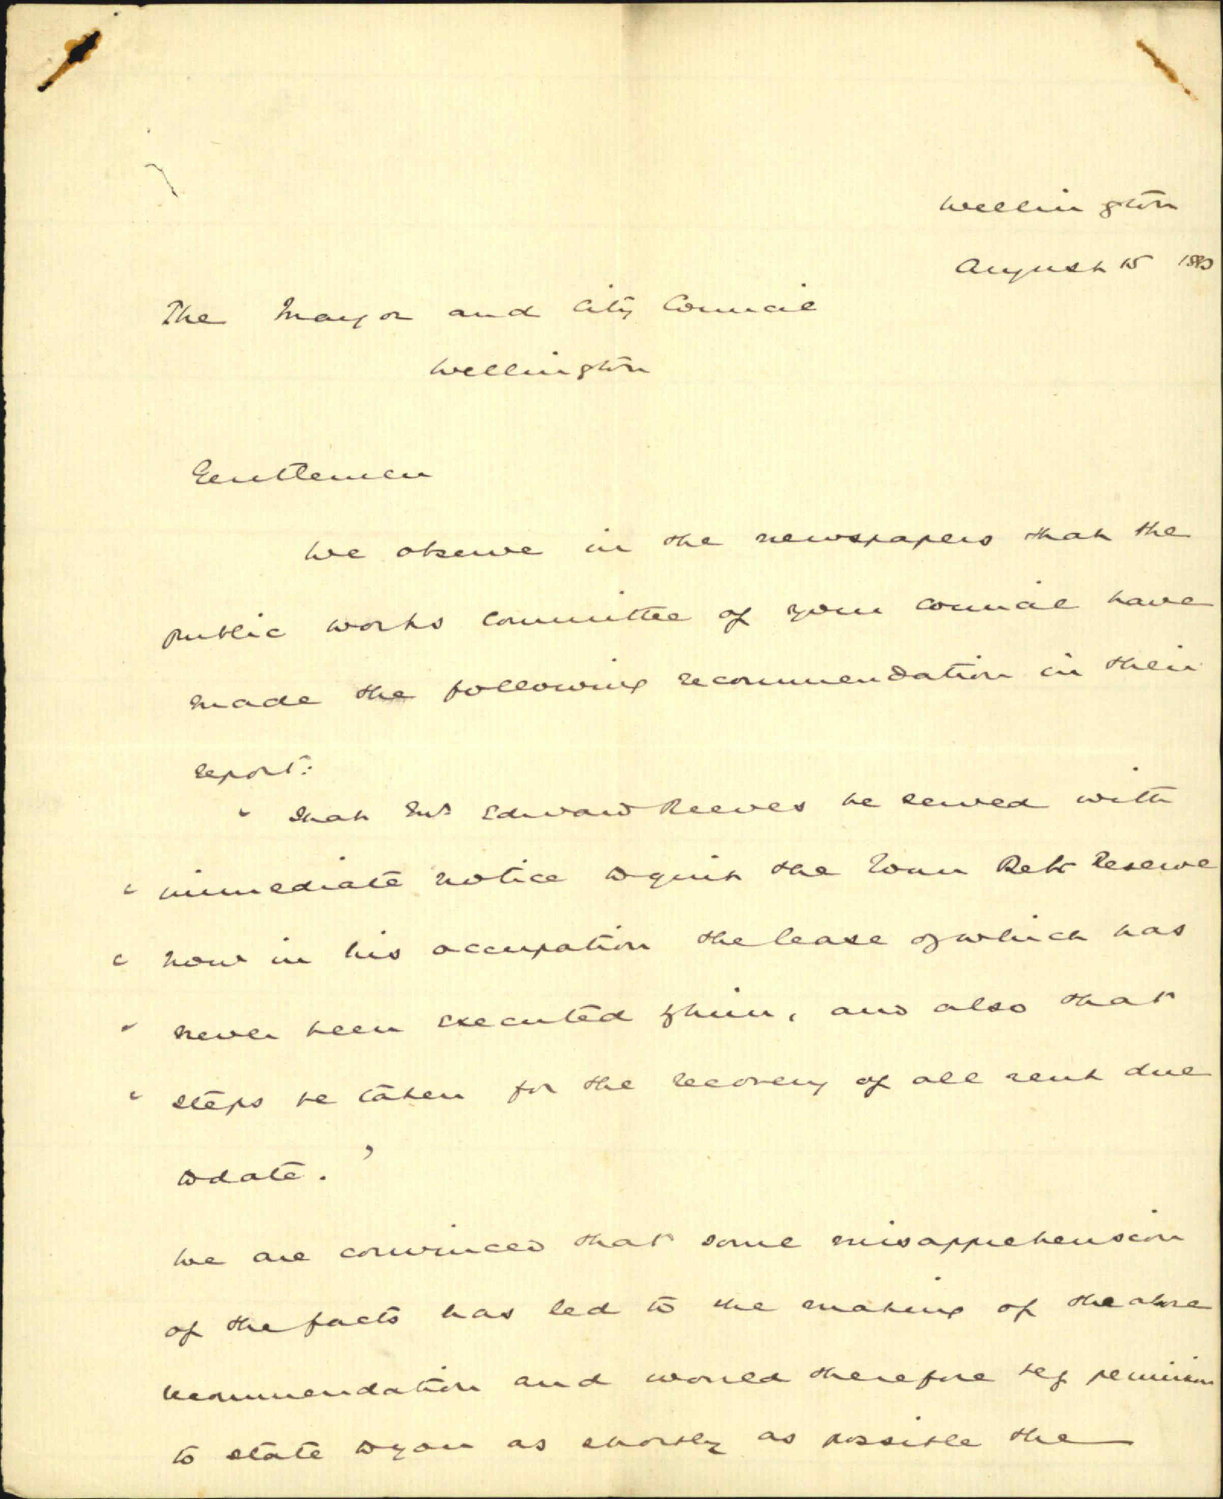 Wellington
August 15
The Mayor and City Council
Wellington
Gentlemen
We observe in the newspapers that the
public works Committee of your Council have
made the following recommendation in their
report:
" That Mr Edward Reeves be served with
" immediate notice to quit the Town Belt Reserve
" now in his occupation the lease of which has
" never been executed by him, and also that
" steps be taken for the recovery of all rent due
to date."
We are convinced that some misapprehension
of the facts has led to the making of the above
recommendation and would therefore beg permission
to state to you as shortly as possible the